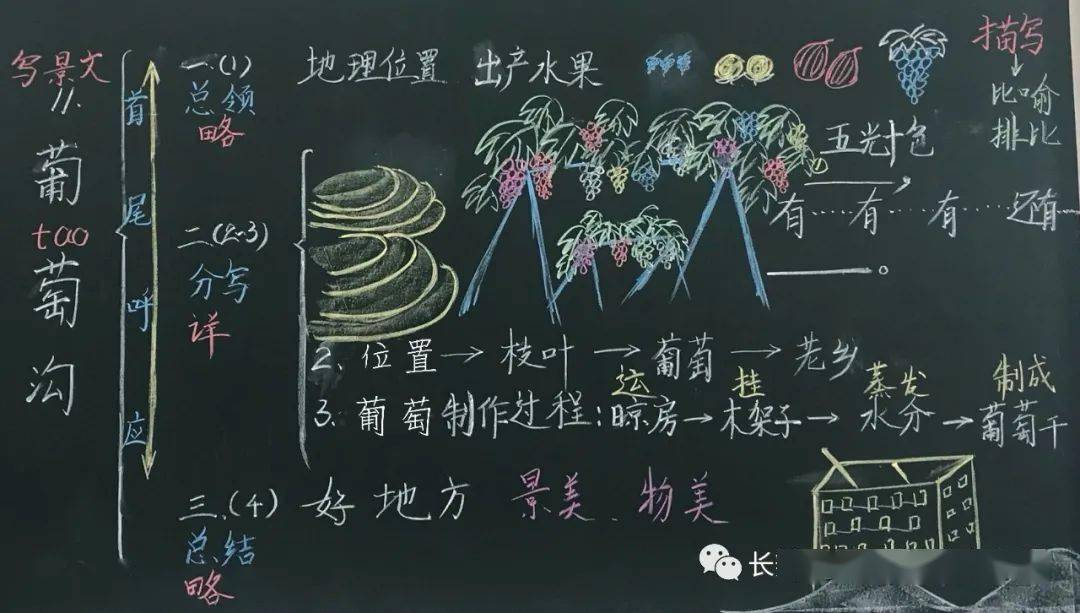 写景文
11.
葡
tao
萄
沟
首
尾
呼
应
一.(1)
总领
略
地理位置 出产水果
描写
比喻
排比
五光十色
有……有……有……还有……
二.(2-3)
分写
详
2、位置→枝叶→葡萄→老乡
运 挂 蒸发 制成
3.葡萄制作过程:晾房→木架子→水分→葡萄干
三.(4)好地方 景美、物美
总结
略
长